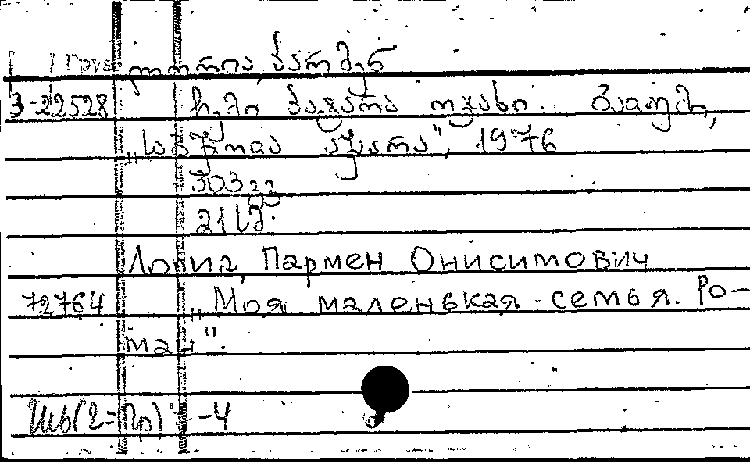 Груз ლორია, პარმენ
3-22528 ჩემი პატარა ოჯახი. ბათუმი,
„საბჭოთა აჭარა", 1976
303 გვ.
21 სმ.
Лория, Пармен Онисимович
72764 „Моя маленькая семья. Ро-
ман".
Шь(2=Пр) -4